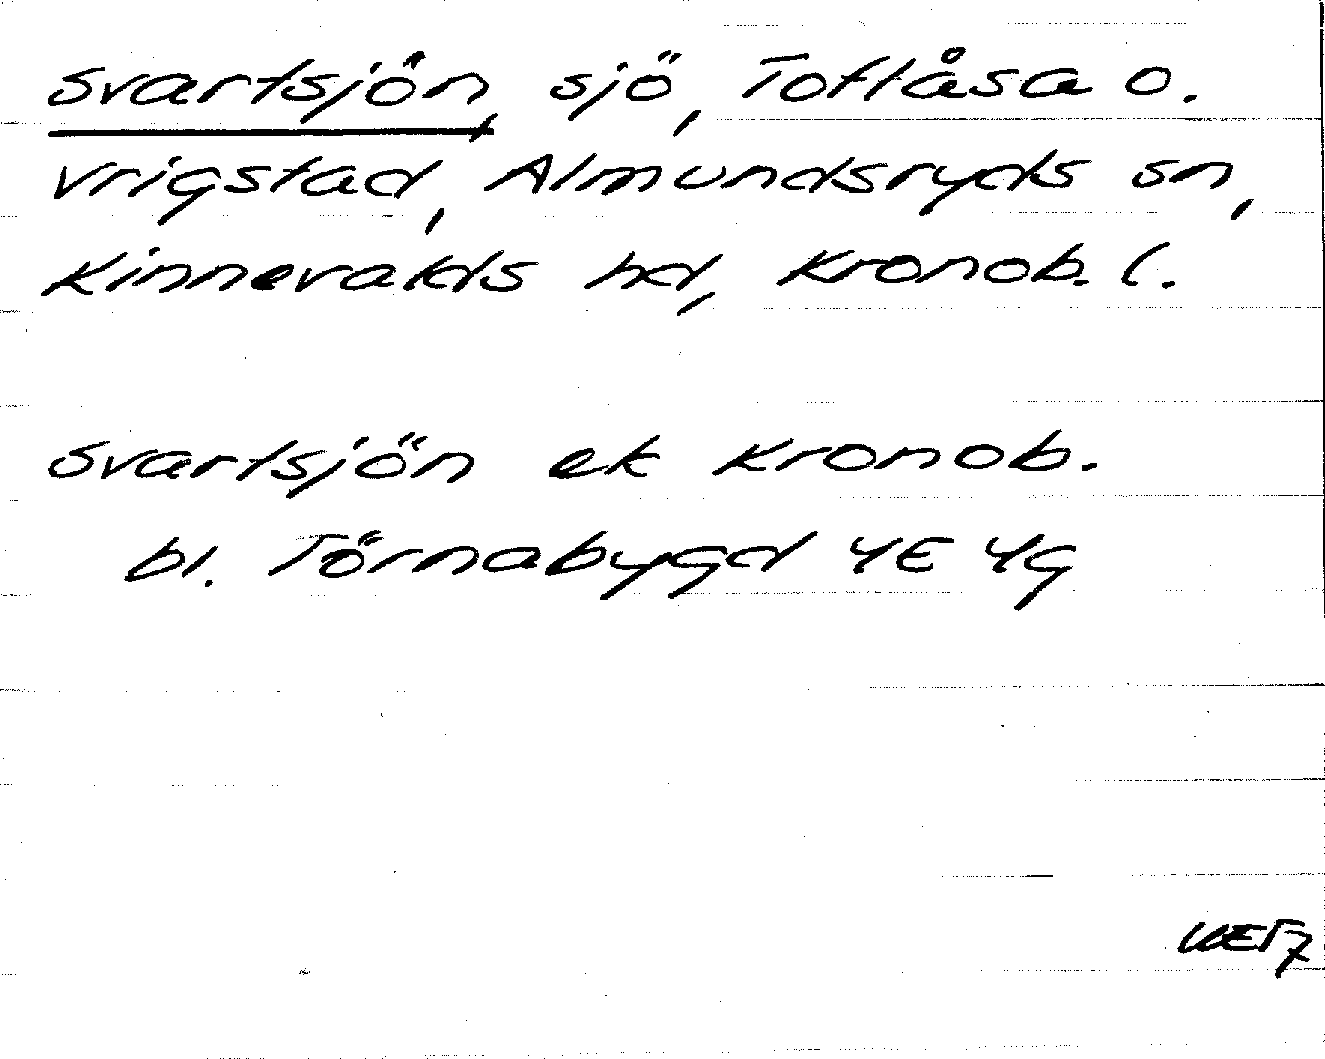 Svartsjön, sjö, Toftåsa o.
Vrigstad, Almundsryds sn,
Kinnevalds hd, Kronob. l.
Svartsjön ek Kronob.
bl. Törnabygd 4E 4g